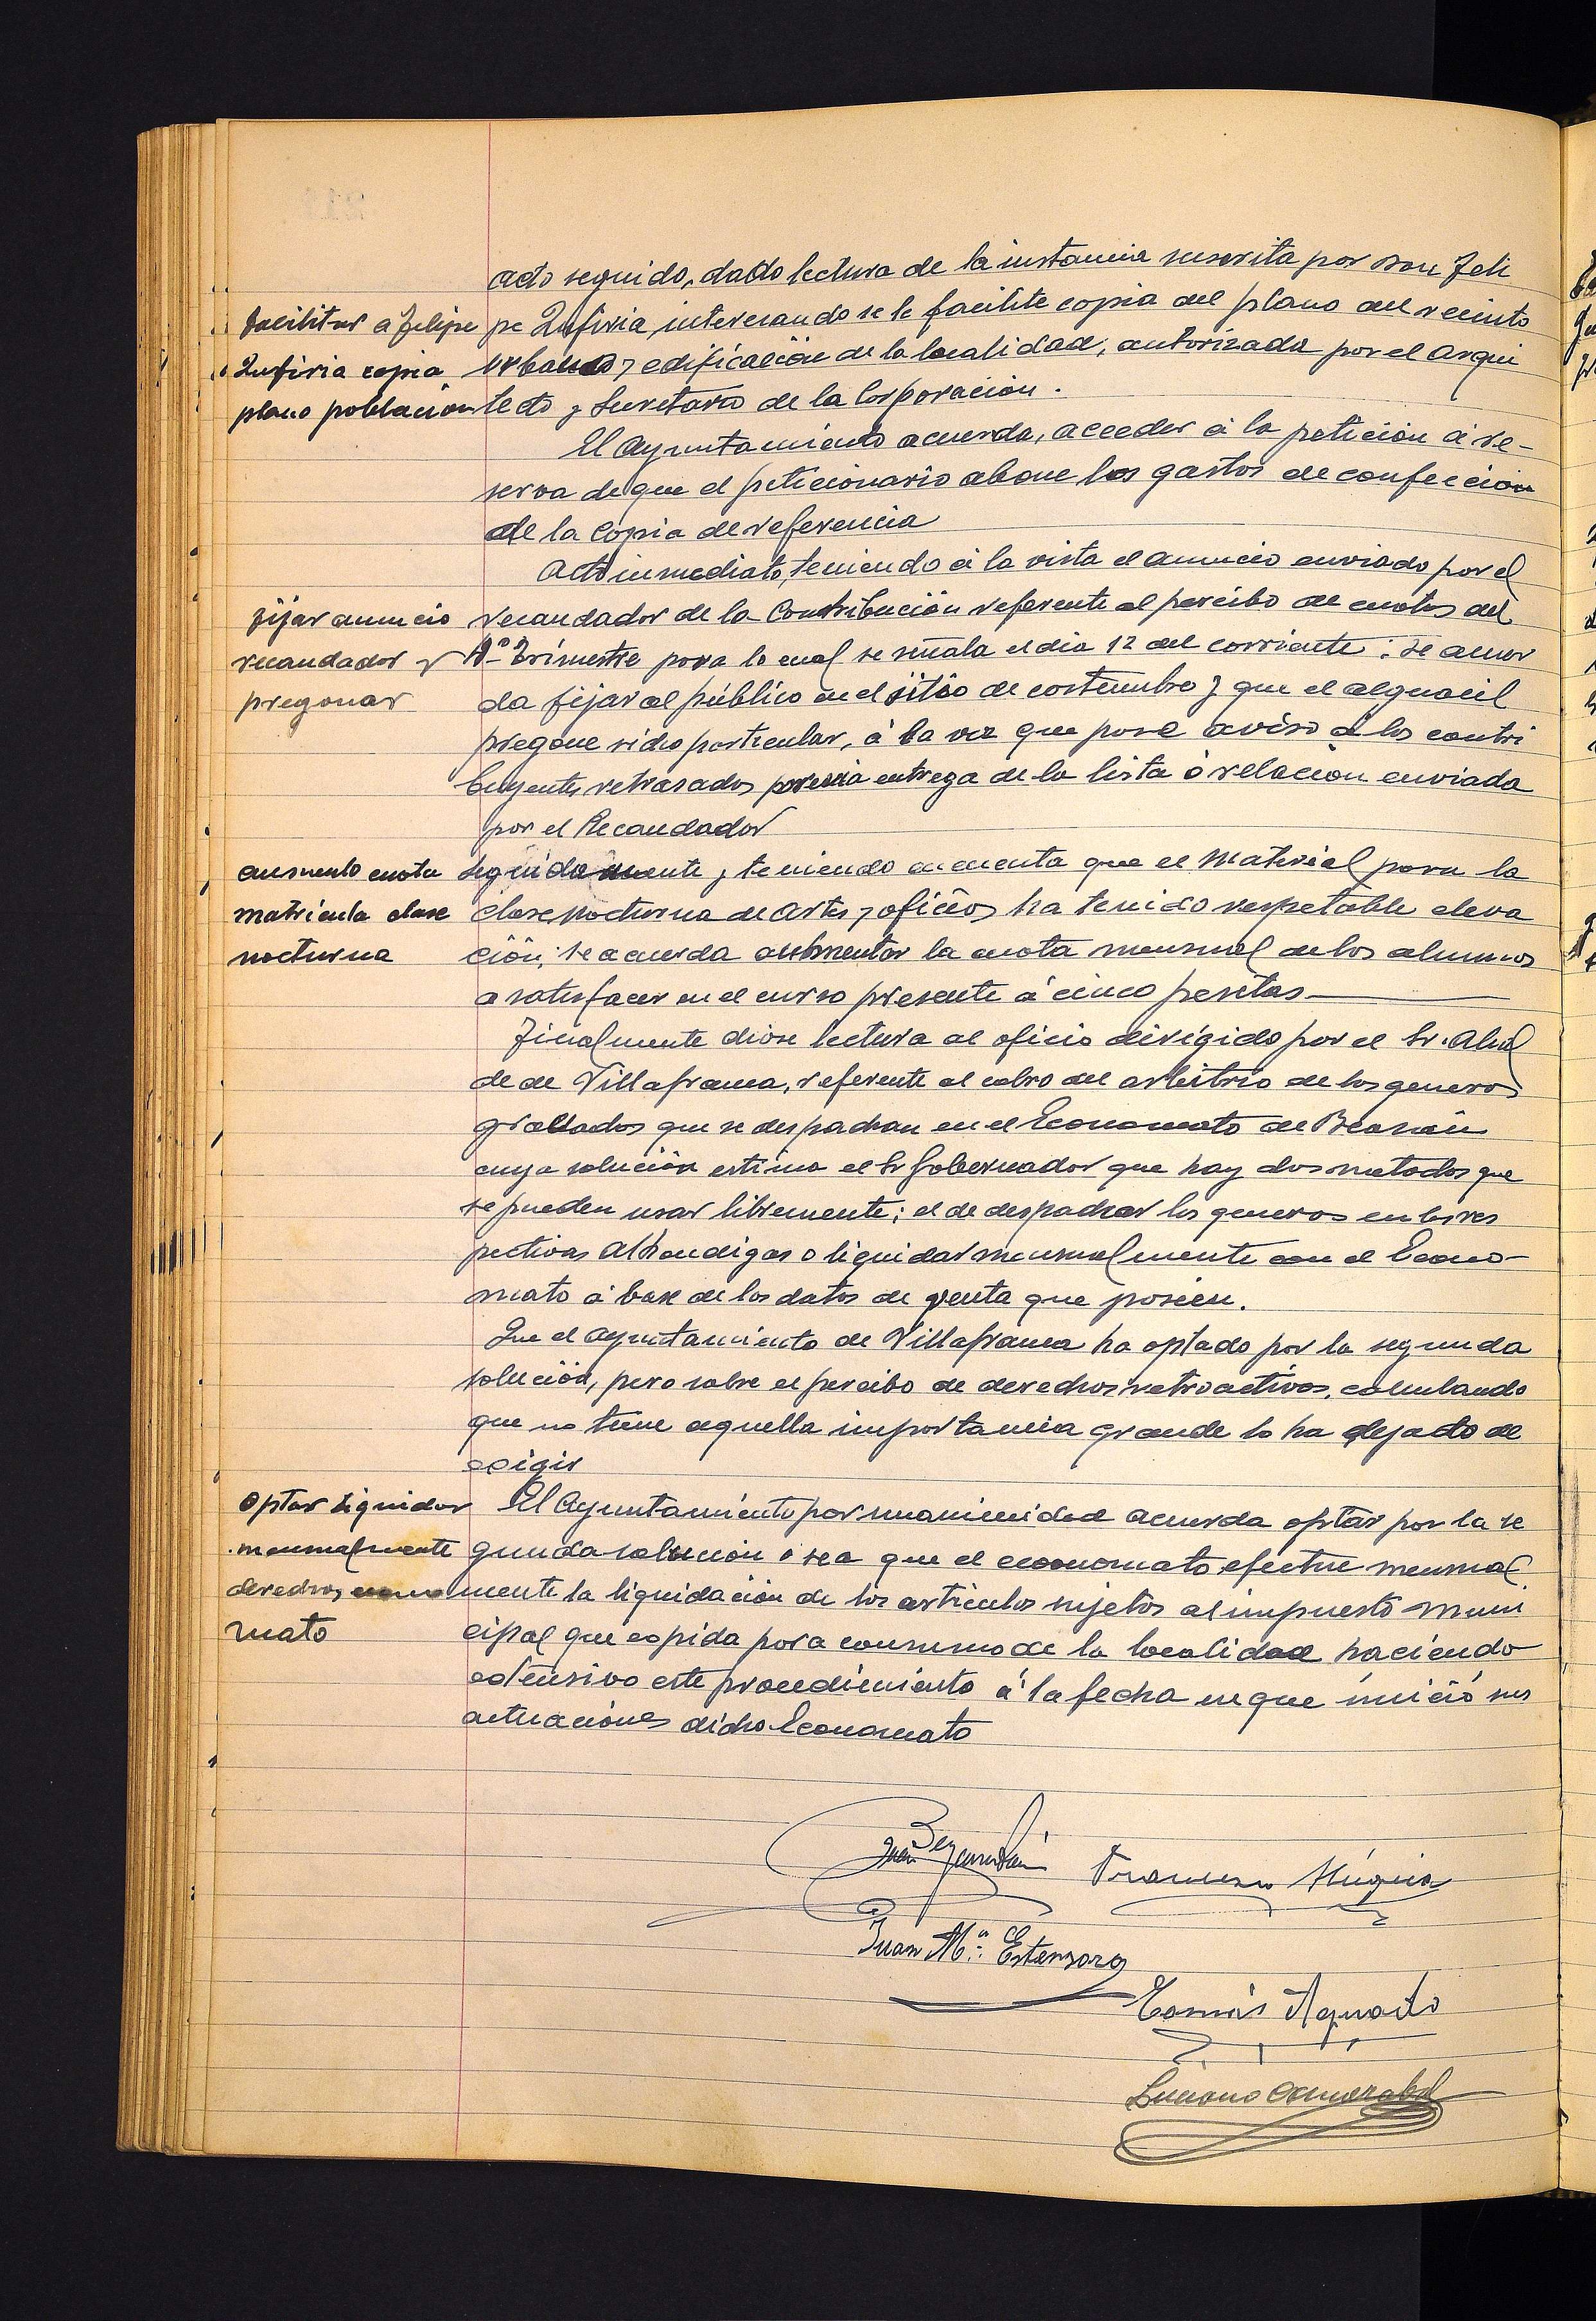 acto seguido, dado lectura de la instancia suscrita por don Feli
facilitar a Felipe
Zufiria copia
plano población
pe Zufiria, interesando se le facilite copia del plano del recinto
urbano y edificación de la localidad, autorizada por el Arqui
tecto y Secretario de la Corporación.
El Ayuntamiento acuerda, acceder á la petición á re-
serva de que el peticionario abone los gastos de confección
de la copia de referencia
Acto inmediato, teniendo á la vista el anuncio enviado por el
fijar anuncio
recaudador y
pregonar
recaudador de la Contribución referente al percibo de cuotas del
Trimestre para lo cual se señala el dia 12 del corriente: se acuer
da fijar al público en el sitio de costumbre y que el alguacil
pregone dicho particular, á la vez que pase aviso á los contri
buyentes retrasados previa entrega de la lista ó relación enviada
por el Recaudador
aumento cuota
matricula clase
nocturna
Seguidamente y teniendo en cuenta que el Material para la
clase nocturna de Artes y oficios ha tenido respetable eleva
ción; se acuerda aumentar la cuota mensual de los alumnos
a satisfacer en el curso presente á cinco pesetas
Finalmente diose lectura al oficio dirigido por el Sr. Alcal
de de Villafranca, referente al cobro del arbitrio de los generos
que se despachan en el Economato de Beasain
cuya solución estima el Sr Gobernador que hay dos metodos que
se pueden usar libremente; el de despachar los generos en las res
pectivas Alhondigas o liquidar mensualmente con el Econo-
mato á base de los datos de venta que poseen.
Que el Ayuntamiento de Villafranca ha optado por la segunda
solución, pero sobre el percibo de derechos retroactivos, calculando
que no tiene aquella importancia grande lo ha dejado de
exigir
Optar liquidar
mensualmente
derechos
mato
El Ayuntamiento por unanimidad acuerda optar por la se
gunda solución o sea que el economato efectue mensual
mente la liquidación de los articulos sujetos al impuesto muni
cipal que expida para consumo de la localidad haciendo
extensivo este procedimiento á la fecha en que inició sus
actuaciones dicho Economato
Francisco Múgica
Juan Mª Estensoro
Tomás Aguado
Luciano